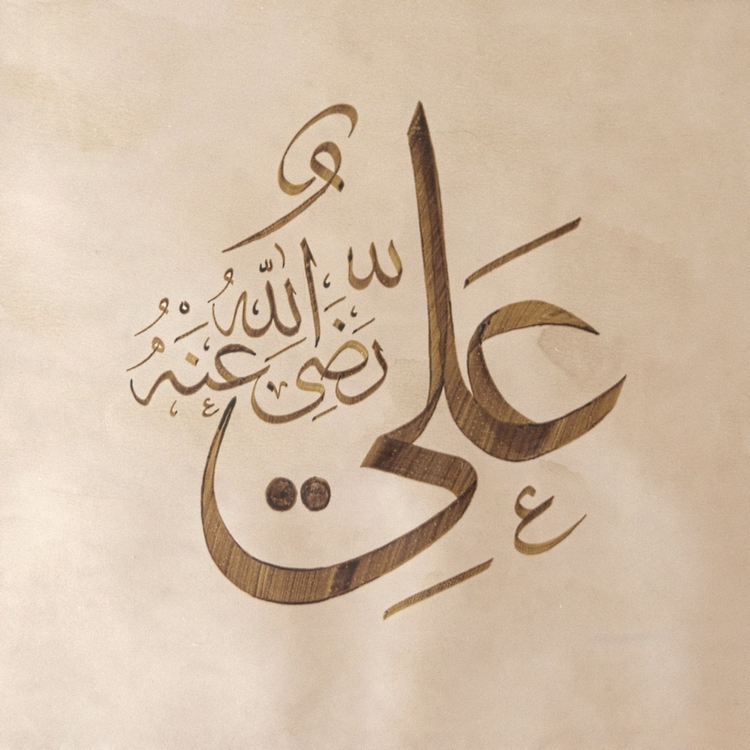 عَلِيّ
رَضِيَ اللّٰهُ عَنْهُ